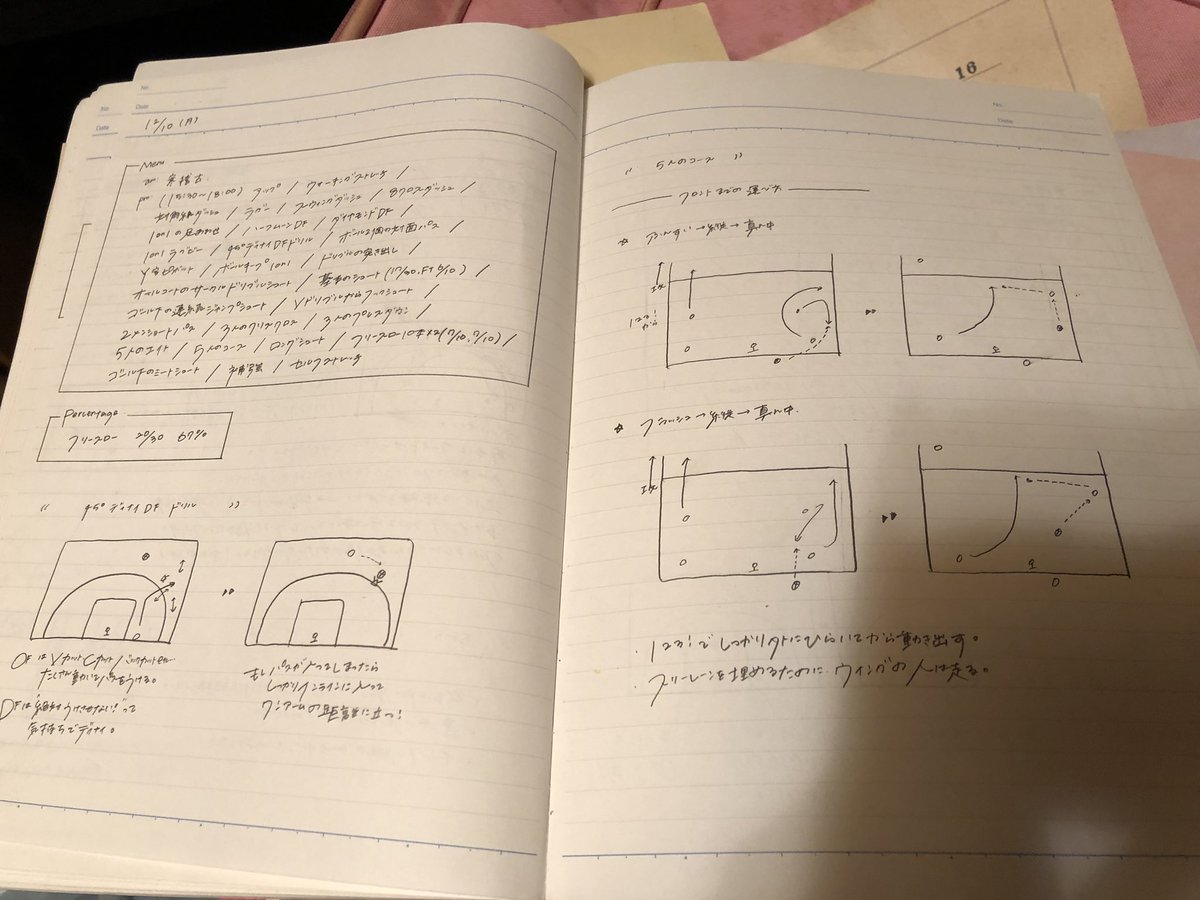 No.
Date
No.
Date
12/10 (月)
Menu
am 朝稽古
pm (15:30~18:00) アップ / ウォーキングストレッチ /
対角線ダッシュ / ラダー / スウィングダッシュ / 8クロスダッシュ
1on1の足あわせ / ハーフムーンDF / ダイヤモンドDF /
1on1ラグビー / 45°ディナイDFドリル / ボール2個の対面パス /
Y字ピボット / ボールキープ1on1 / ドリブルの突き出し /
オールコートのサークルドリブルシュート / 基本のシュート (17/30, FT 6/10) /
ゴム下の連続ジャンプシュート / Vドリブルからフックシュート
2メンショートパス / 3人のクリスクロス / 3人のプレスダウン /
5人のエイト / 5人のコース / ロングシュート / フリースロー10本×2(7/10, 7/10) /
ゴム下のミートシュート / 補強 / セルフストレッチ
Percentage
フリースロー 20/30 67%
" 45°ディナイDF ドリル "
OFはVカットCカット/バックカットetc
たくさん動いてパスをうける。
DFは絶対うけさせない!って
気持ちでディナイ。
もしパスが入ってしまったら
しっかりインラインに入って
ワンアームの距離に立つ!
16
No.
Date
" 5人のコース "
フロントまでの運び方
☆ →縦→真ん中
1歩
123!から
☆ フラッシュ→縦→真ん中
1歩
・123!でしっかり外にひらいてから動き出す。
・スリーレーンを埋めるために、ウィングの人は走る。